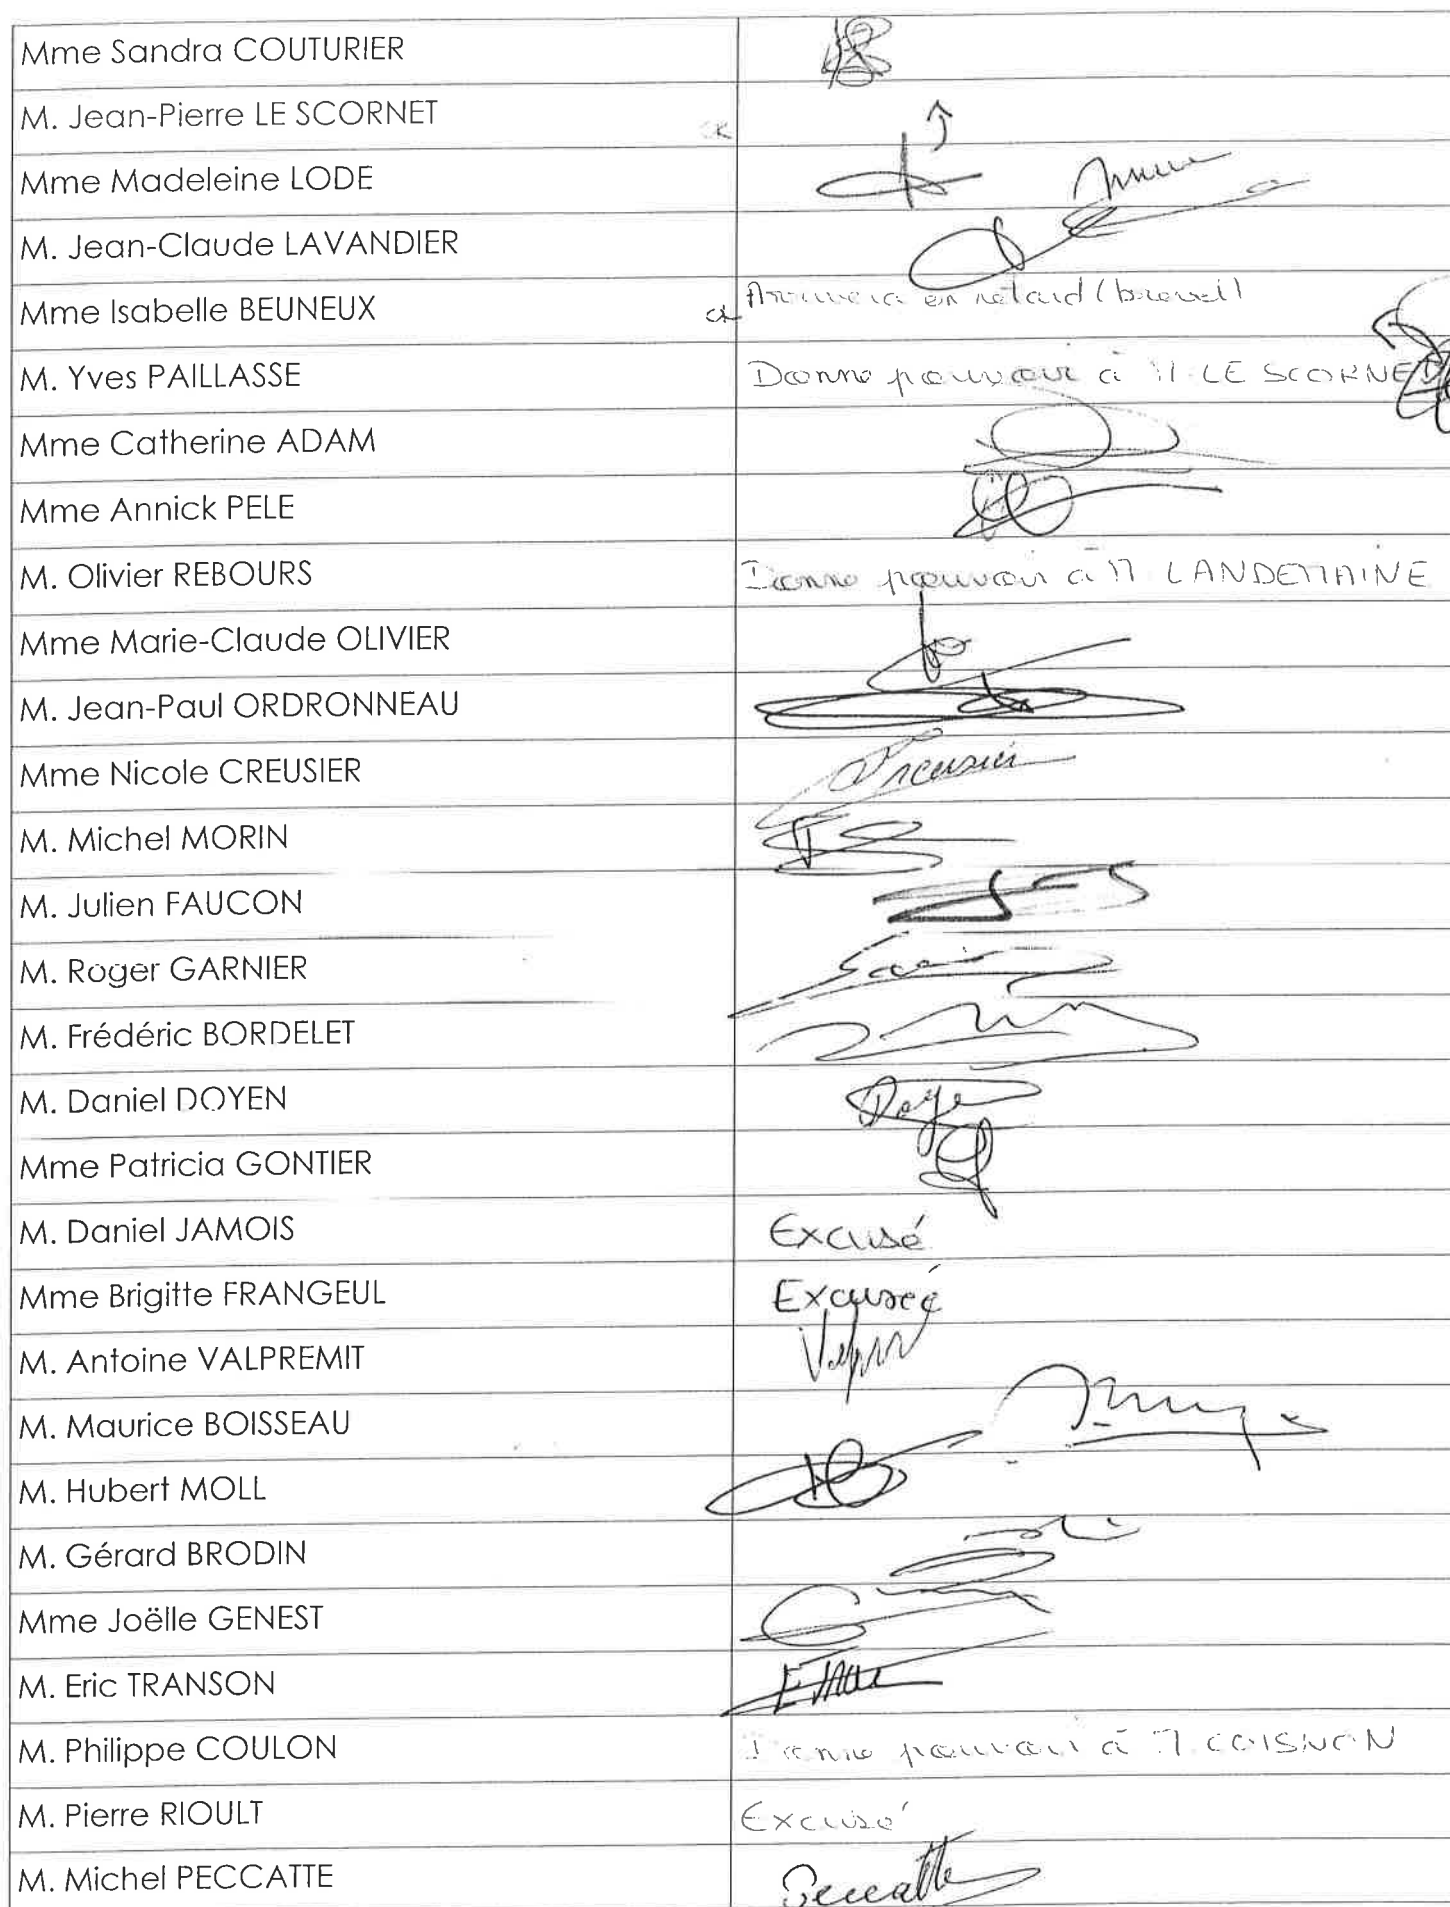 Mme Sandra COUTURIER
M. Jean-Pierre LE SCORNET
Mme Madeleine LODE
M. Jean-Claude LAVANDIER
Mme Isabelle BEUNEUX en retard
M. Yves PAILLASSE Donne pouvoir à M. LE SCORNET
Mme Catherine ADAM
Mme Annick PELE
M. Olivier REBOURS Donne pouvoir à M. LANDEMAINE
Mme Marie-Claude OLIVIER
M. Jean-Paul ORDRONNEAU
Mme Nicole CREUSIER
M. Michel MORIN
M. Julien FAUCON
M. Roger GARNIER
M. Frédéric BORDELET
M. Daniel DOYEN
Mme Patricia GONTIER
M. Daniel JAMOIS Excusé
Mme Brigitte FRANGEUL Excusée
M. Antoine VALPREMIT
M. Maurice BOISSEAU
M. Hubert MOLL
M. Gérard BRODIN
Mme Joëlle GENEST
M. Eric TRANSON
M. Philippe COULON Donne pouvoir à M. COISNON
M. Pierre RIOULT Excusé
M. Michel PECCATTE Peccatte